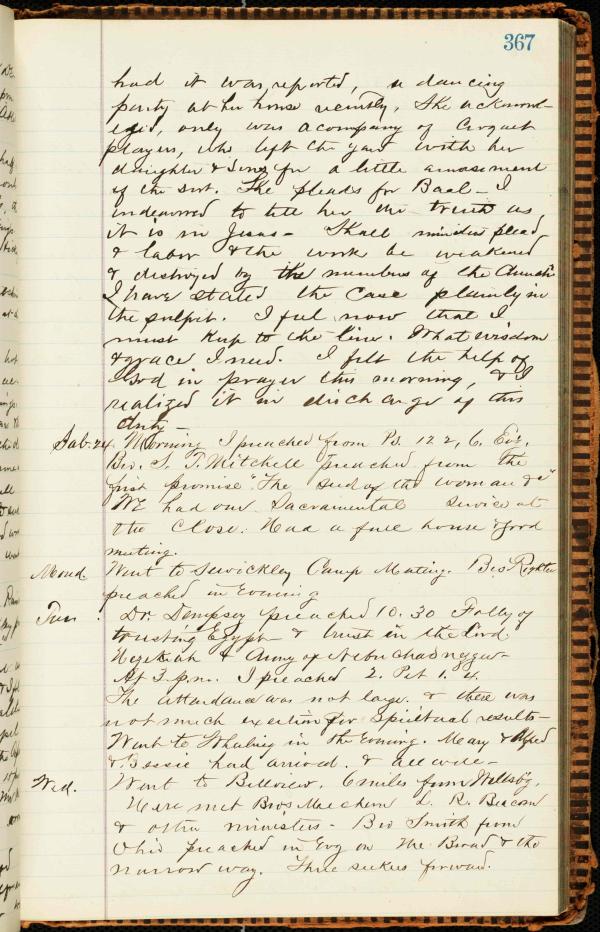 367
had it was, reported, a dancing
party at her house recently. She acknowl-
eged, only was a company of Croquet
players, who left the yard with her
daughter & Sons for a little amusement
of the sort. She pleads for Baal - I
indeavored to tell her the truth as
it is in Jesus - Shall minister plead
& labor & the work be weakened
& destroyed by the members of the Church
I have stated the case plainly in
the pulpit. I feel now that I
must keep to the line. What wisdom
& grace I need. I felt the help of
God in prayer this morning, & I
realized it in discharge of this
duty -
Sab. 24. Morning I preached from Ps. 122, 6. Evg.
Bro. S. T. Mitchell preached from the
first promise "The seed of the woman &c"
We had our Sacramental service at
the close. Had a full house good
meeting.
Mond. Went to Sewickley Camp Meeting. Bro Righter
preached in Evening
Tues. Dr. Dempsey preached 10.30 Folly of
trusting Egypt & trust in the Lord
Hezekiah & Army of
At 3 p.m. I preached 2. Pet 1. 4.
The attendance was not large. & there was
not much exertion for Spiritual results -
Went to in the Evening. Mary &
& Bessie had arrived. & all well -
Wed. Went to Bellview. 6 miles from Wellsbg.
Here met Bros L. R. Beacom
& other ministers - Bro Smith from
Ohio preached in Evg on the Broad & the
narrow way. Three seekers forward.